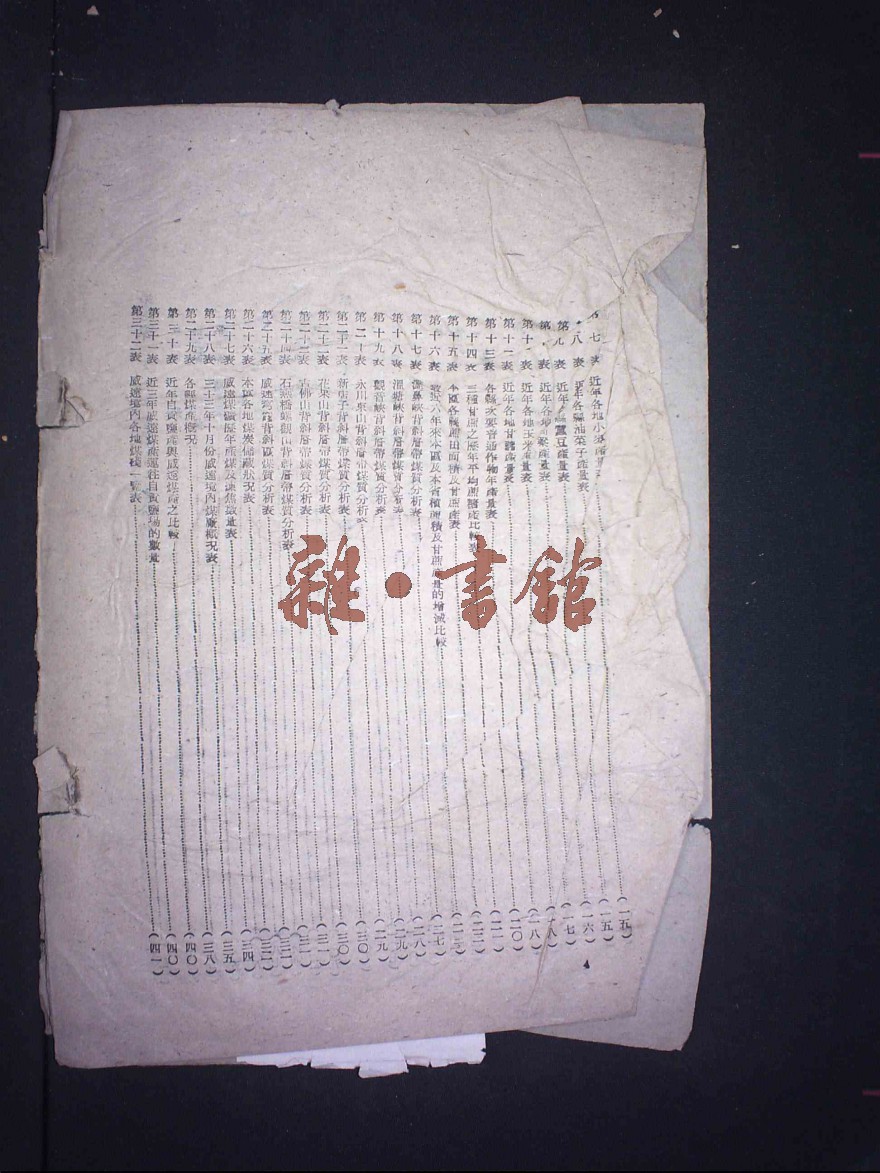 七 表 近年各地小麥產量表 (一五)
八 表 近年各縣油菜子產量表 (一五)
第九表 近年 蠶豆產量表 (一六)
表 近年各地 產量表 (一七)
第十 表 近年各地玉米產量表 (一八)
第十二表 近年各地甘藷產量表 (二〇)
第十三表 各縣次要普通作物年產量表
第十四表 三種甘蔗之歷年平均蔗糖產比較表
第十五表 本區各縣蔗田面積及甘蔗產表
第十六表 最近六年來本區及本省植蔗面積及甘蔗產量的增減比較 (二七)
第十七表 背斜層帶煤質分析表 (二八)
第十八表 溫塘峽背斜層帶煤質分析表 (二九)
第十九表 觀音峽背斜層帶煤質分析表 (二九)
第二十表 永川東山背斜層帶煤質分析表 (三〇)
第二十一表 新店子背斜層帶煤質分析表 (三〇)
第二十二表 花果山背斜層帶煤質分析表 (三一)
第二十三表 古佛山背斜層帶煤質分析表 (三一)
第二十四表 石燕橋螺觀山背斜層帶煤質分析表 (三二)
第二十五表 威遠穹窿背斜區煤質分析表 (三三)
第二十六表 本區各地煤炭儲藏狀況表 (三四)
第二十七表 威遠煤礦歷年產煤及煉焦數量表 (三五)
第二十八表 三十三年十月份威遠境內煤廠概況表 (三八)
第二十九表 各縣煤產概況 (四〇)
第三十表 近年自貢鹽產與威遠煤產之比較 (四〇)
第三十一表 近三年威遠煤產運往自貢鹽場的數量 (四一)
第三十二表 威遠境內各地煤棧一覽表
雜·書館